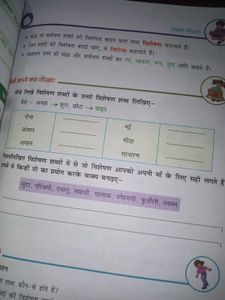 संज्ञा या सर्वनाम शब्दों की विशेषता बताने वाले शब्द विशेषण कहलाते हैं।
जिन शब्दों की विशेषता बताई जाए, वे विशेष्य कहलाते हैं।
विशेषण शब्द ही संज्ञा और सर्वनाम शब्दों का रंग, आकार, रूप, गुण आदि बताते हैं।
नीचे लिखे विशेषण शब्दों के उलटे विशेषण शब्द लिखिए-
जैसे - अच्छा → बुरा, छोटा → बड़ा।
नीचा
नई
कोमल
मीठा
साधारण
निम्नलिखित विशेषण शब्दों में से जो विशेषण आपको अपनी माँ के लिए सही लगते हैं
उनमें से किन्हीं दो का प्रयोग करके वाक्य बनाइए-
सुंदर, परिश्रमी, दयालु, साहसी, चालाक, स्नेहमयी, फुर्तीली, स्वस्थ
शब्द कौन-से होते हैं?